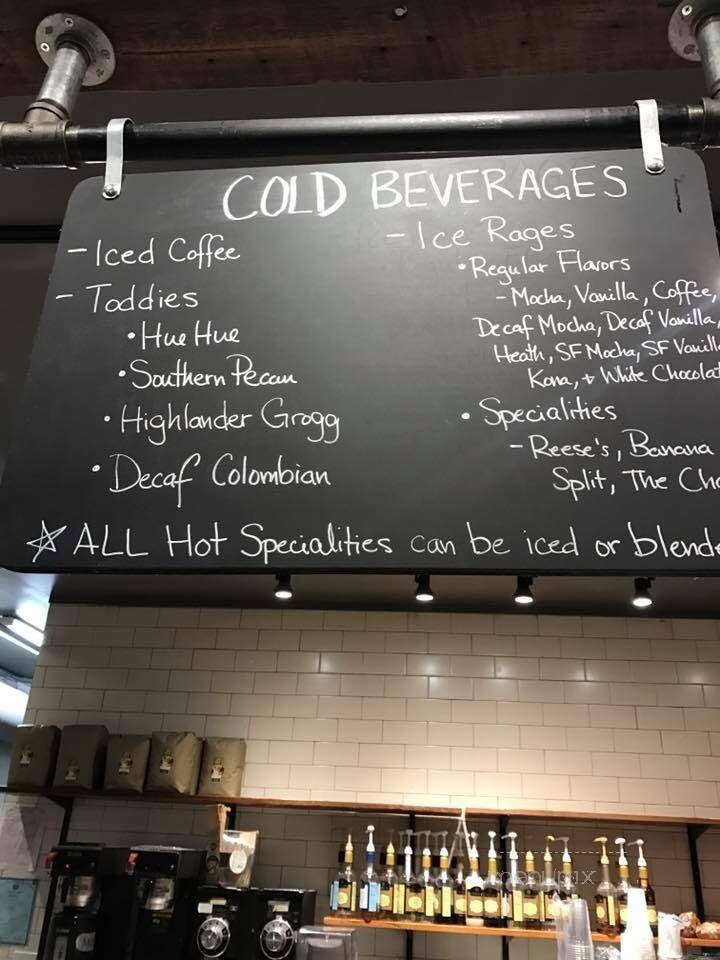 COLD BEVERAGES
- Iced Coffee
- Toddies
• Hue Hue
• Southern Pecan
• Highlander Grogg
• Decaf Colombian
- Ice Rages
• Regular Flavors
- Mocha, Vanilla, Coffee,
Decaf Mocha, Decaf Vanilla,
Heath, SF Mocha, SF
Kona, + White
• Specialities
- Reese's, Banana
Split, The
☆ ALL Hot Specialities can be iced or